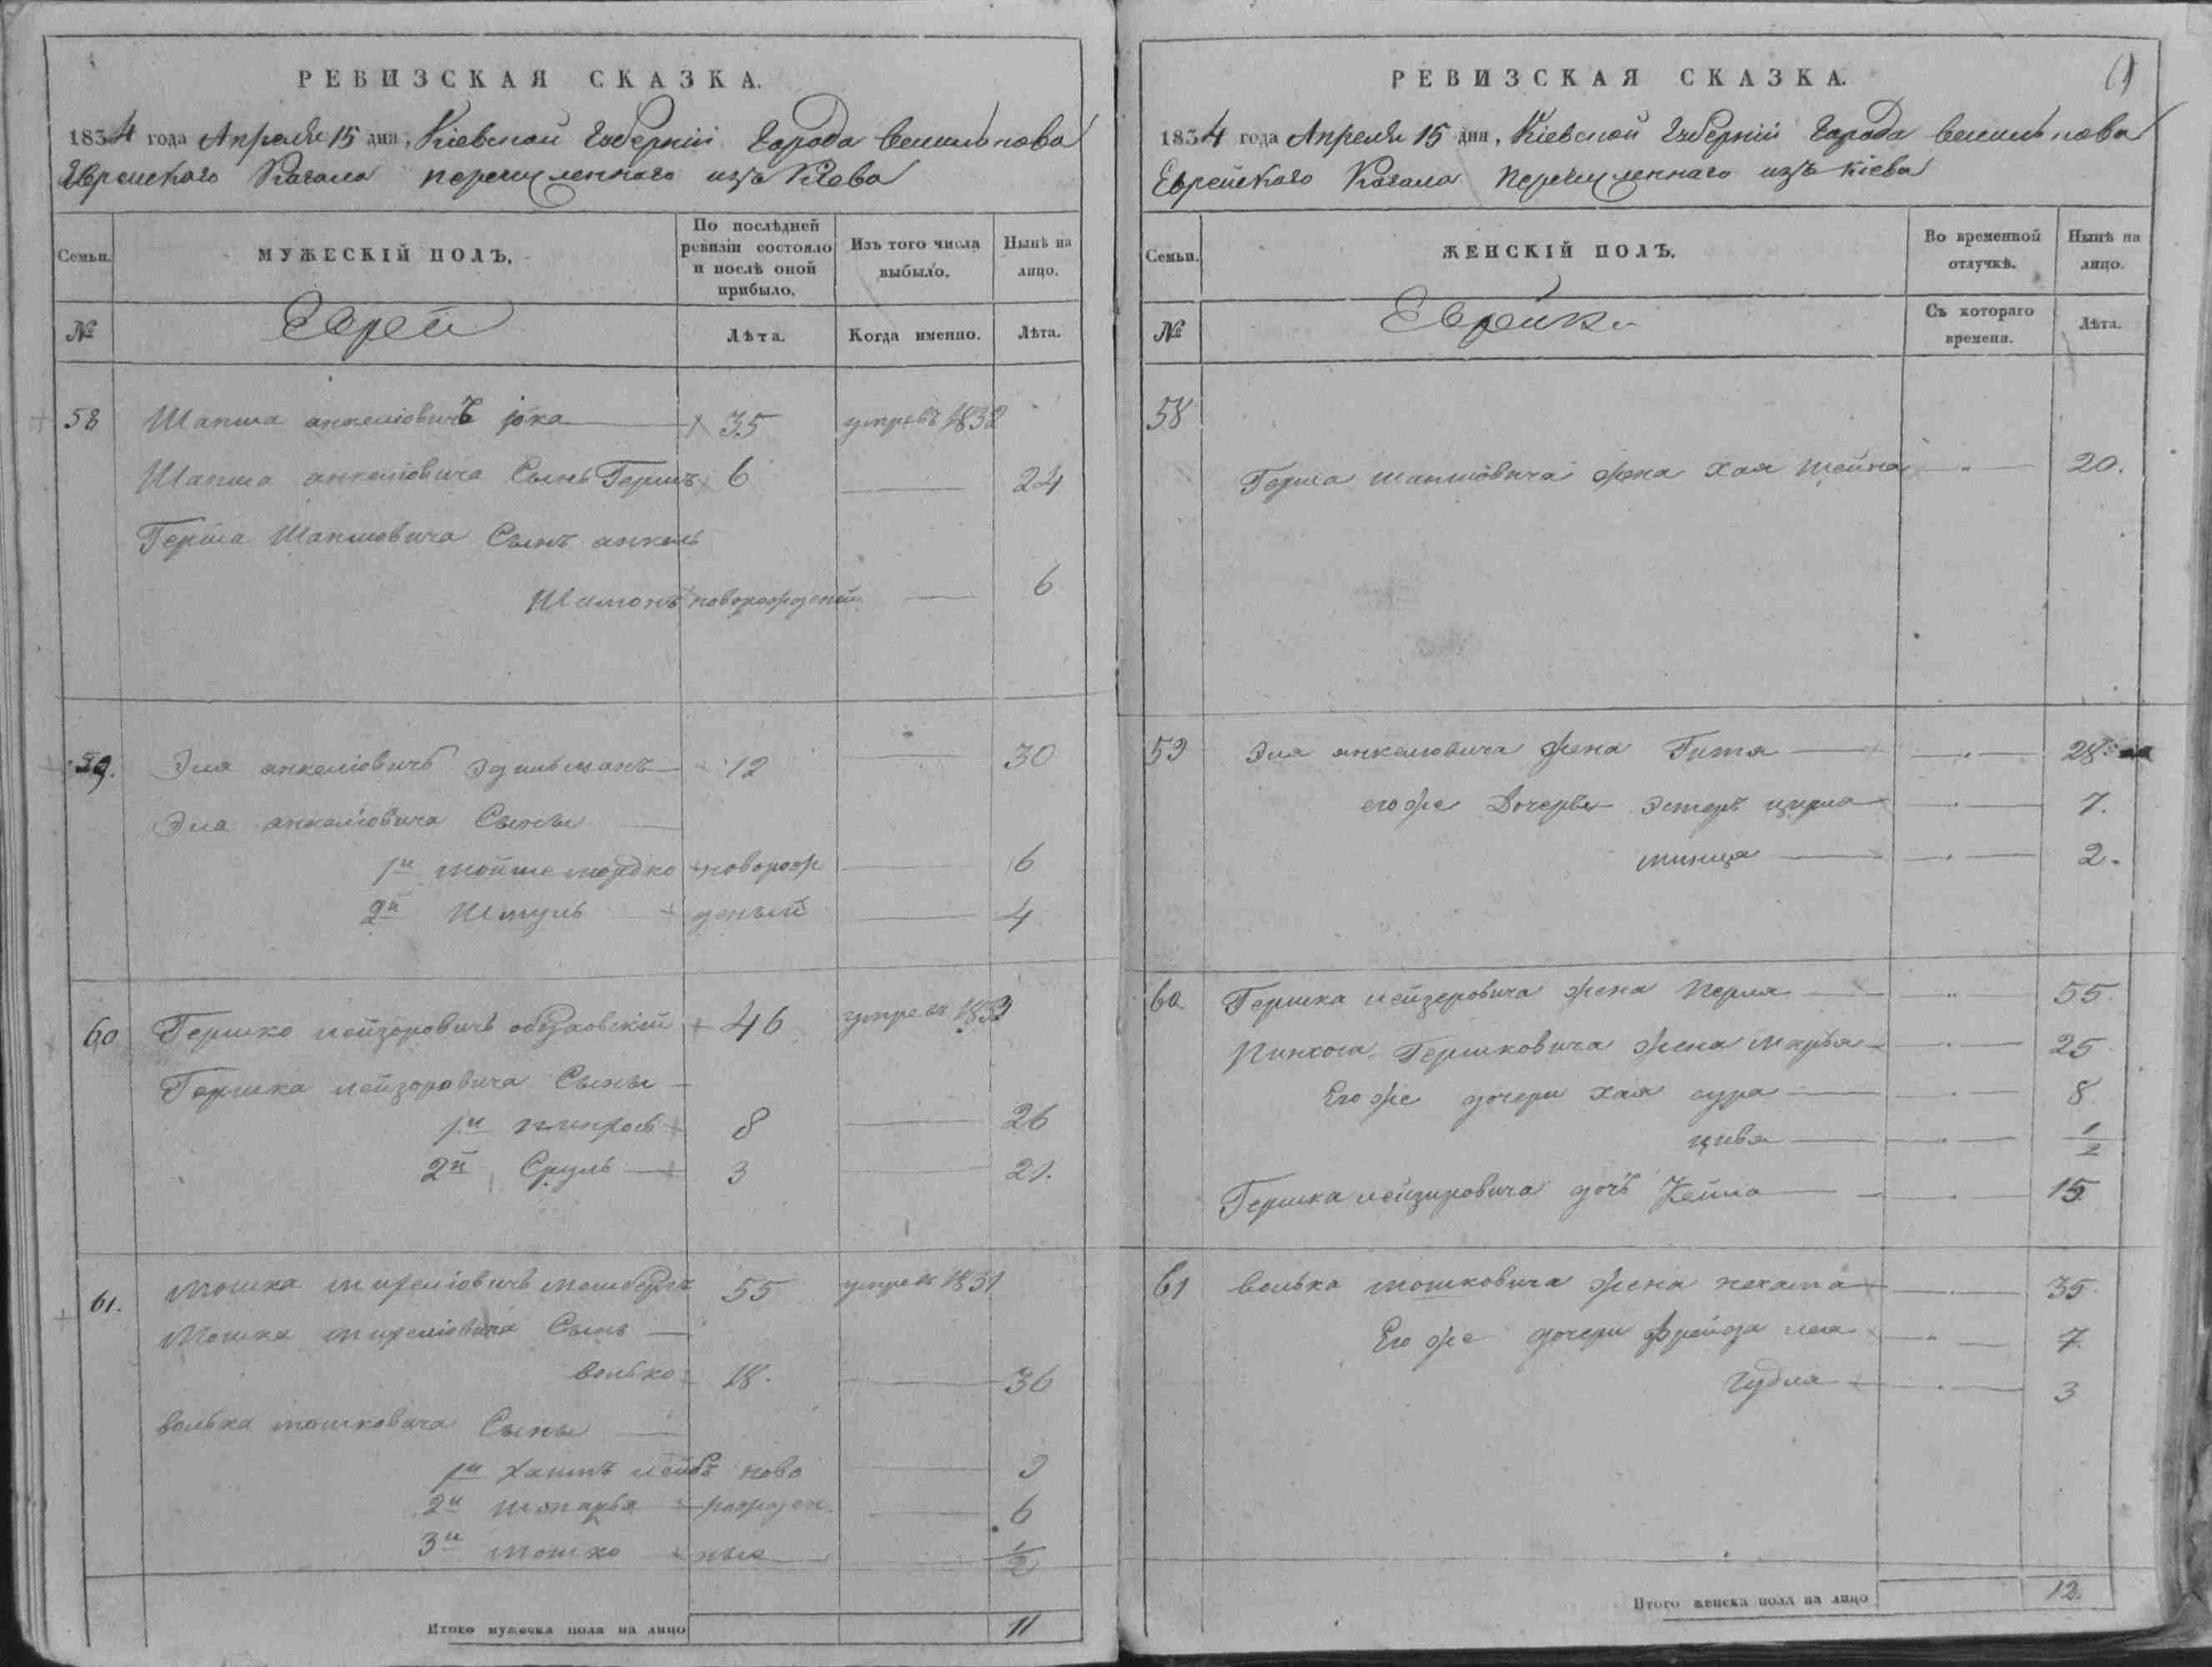 РЕВИЗСКАЯ СКАЗКА.
1834 года Апреля 15 дня, Кіевской Губерніи Города Василькова
Еврейскаго Кагала перечисленнаго изъ Кіева
Семьи.
МУЖЕСКІЙ ПОЛЪ.
По послѣдней ревизіи состояло и послѣ оной прибыло.
Изъ того числа выбыло.
Нынѣ на лицо.
№
Еврей
Лѣта.
Когда именно.
Лѣта.
58 Шапша анкеліовичъ 35 умре въ 1832
Шапша анкеліовича Сынъ Гершъ 6 24
Герша Шапшовича Сынъ анкель
Шимонъ новорожденый 6
59. Эла анкеліовичъ 12 30
Эла анкеліовича Сыны
1й мойше мордко новорож 6
2й Шмуль деныи 4
60 Гершко лейзоровичъ 46 умре въ 1832
Гершка лейзоровича Сыны
1й пинхосъ 8 26
2й Сруль 3 21.
61. Мошка 55 умре въ 1831
Мошка Сынъ
волько 18. 36
волька мошковича Сыны
1й хаимъ лейбъ ново 9
2й рожден 6
3й мошко ные 1/2
Итого мужеска пола на лицо 11
РЕВИЗСКАЯ СКАЗКА.
1834 года Апреля 15 дня, Кіевской Губерніи Города Василькова
Еврейскаго Кагала перечисленнаго изъ Кіева
Семьи.
ЖЕНСКІЙ ПОЛЪ.
Во временной отлучкѣ.
Нынѣ на лицо.
№
Еврейки
Съ котораго времени.
Лѣта.
58
Герша шапшовича жена хая шейна 20.
59 Эла анкеліовича жена Гитя 28.
его же Дочерья Эстеръ цирля 7.
минця 2.
60 Гершка лейзеровича жена перля 55.
Пинхоса Гершковича жена марья 25
Его же дочери хая сура 8
цивя 1/2
Гершка лейзировича дочъ Хейна 15
61 волька мошковича жена нехама 35.
Его же дочери фрейда лея 7
гудля 3
Итого женска пола на лицо 12.